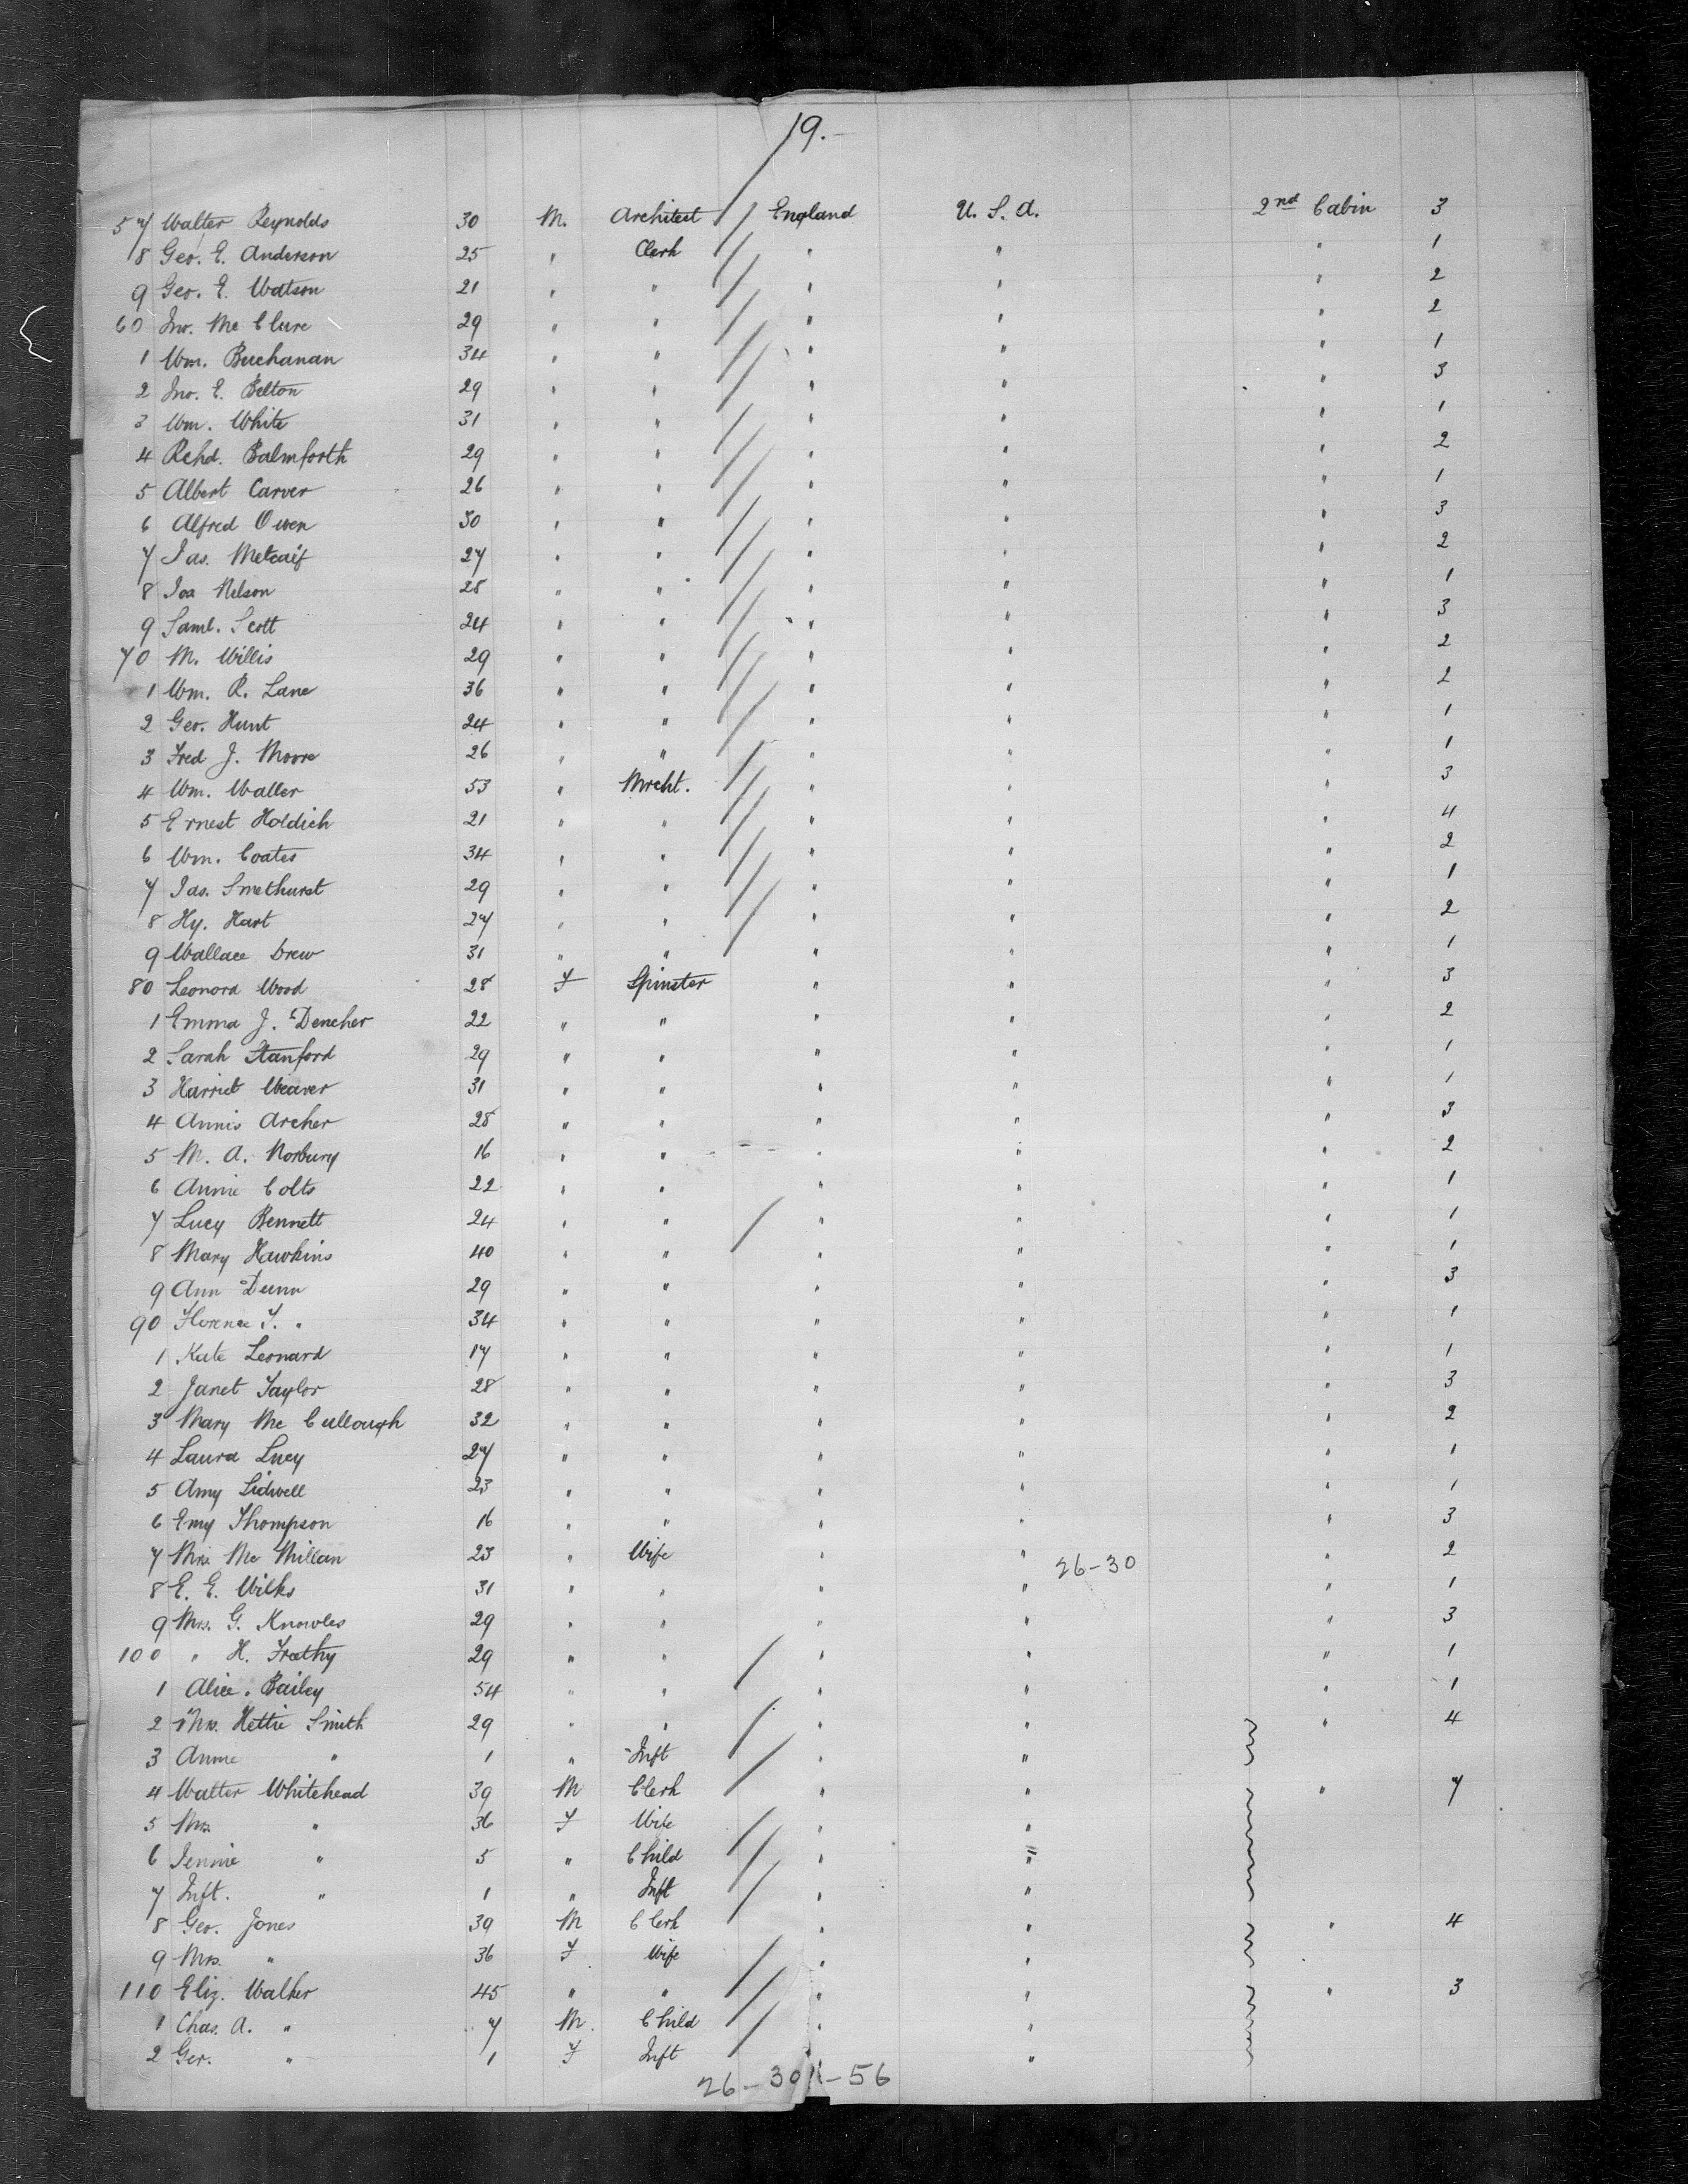 19.
57 Walter Reynolds 30 M. Architect England U. S. A. 2nd Cabin 3
8 Geo. E. Anderson 25 " Clerk " " " 1
9 Geo. E. Watson 21 " " " " " 2
60 Jno. Mc Clure 29 " " " " " 2
1 Wm. Buchanan 34 " " " " " 1
2 Jno. E. Belton 29 " " " " " 3
3 Wm. White 31 " " " " " 1
4 Rchd. Balmforth 29 " " " " " 2
5 Albert Carver 26 " " " " " 1
6 Alfred Owen 30 " " " " " 3
7 Jas. Metcalf 27 " " " " " 2
8 Jos Nelson 28 " " " " " 1
9 Saml. Scott 24 " " " " " 3
70 M. Willis 29 " " " " " 2
1 Wm. R. Lane 36 " " " " " 2
2 Geo. Hunt 24 " " " " " 1
3 Fred J. Moore 26 " " " " " 1
4 Wm. Waller 53 " Mrcht. " " " 3
5 Ernest Holdich 21 " " " " " 4
6 Wm. Coates 34 " " " " " 2
7 Jas. Smethurst 29 " " " " " 1
8 Hy. Hart 27 " " " " " 2
9 Wallace Drew 31 " " " " " 1
80 Leonora Wood 28 F Spinster " " " 3
1 Emma J. Dencher 22 " " " " " 2
2 Sarah Stanford 29 " " " " " 1
3 Harriet Weaver 31 " " " " " 1
4 Annis Archer 28 " " " " " 3
5 M. A. Norbury 16 " " " " " 2
6 Annie Colts 22 " " " " " 1
7 Lucy Bennett 24 " " " " " 1
8 Mary Hawkins 40 " " " " " 1
9 Ann Dunn 29 " " " " " 3
90 Florence F. " 34 " " " " " 1
1 Kate Leonard 17 " " " " " 1
2 Janet Taylor 28 " " " " " 3
3 Mary Mc Cullough 32 " " " " " 2
4 Laura Lucy 27 " " " " " 1
5 Amy Sidwell 23 " " " " " 1
6 Emy Thompson 16 " " " " " 3
7 Mrs Mc Millan 23 " Wife " " 26-30 " 2
8 E. E. Wilks 31 " " " " " 1
9 Mrs. G. Knowles 29 " " " " " 3
100 " H. 29 " " " " " 1
1 Alice. Bailey 54 " " " " " 1
2 Mrs. Hettie Smith 29 " " " " " 4
3 Annie " 1 " Inft " "
4 Walter Whitehead 39 M Clerk " " " 7
5 Mrs " 36 F Wife " "
6 Jennie " 5 " Child " "
7 Inft. " 1 " Inft " "
8 Geo. Jones 39 M Clerk " " " 4
9 Mrs. " 36 F Wife " "
110 Eliz. Walker 45 " " " " " 3
1 Chas. A. " 7 M. Child " "
2 Ger. " 1 F Inft " "
26-30 11-56